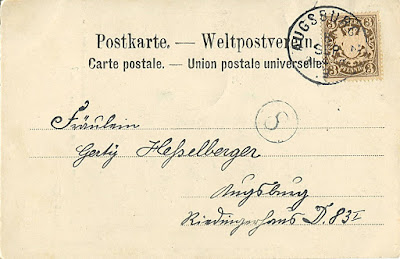 Postkarte. — Weltpostverein.
Carte postale. — Union postale universelle.
AUGSBURG
3 3
3 3
S
Fräulein
Gerty Hesselberger
Augsburg
Riedingerhaus D. 83 I